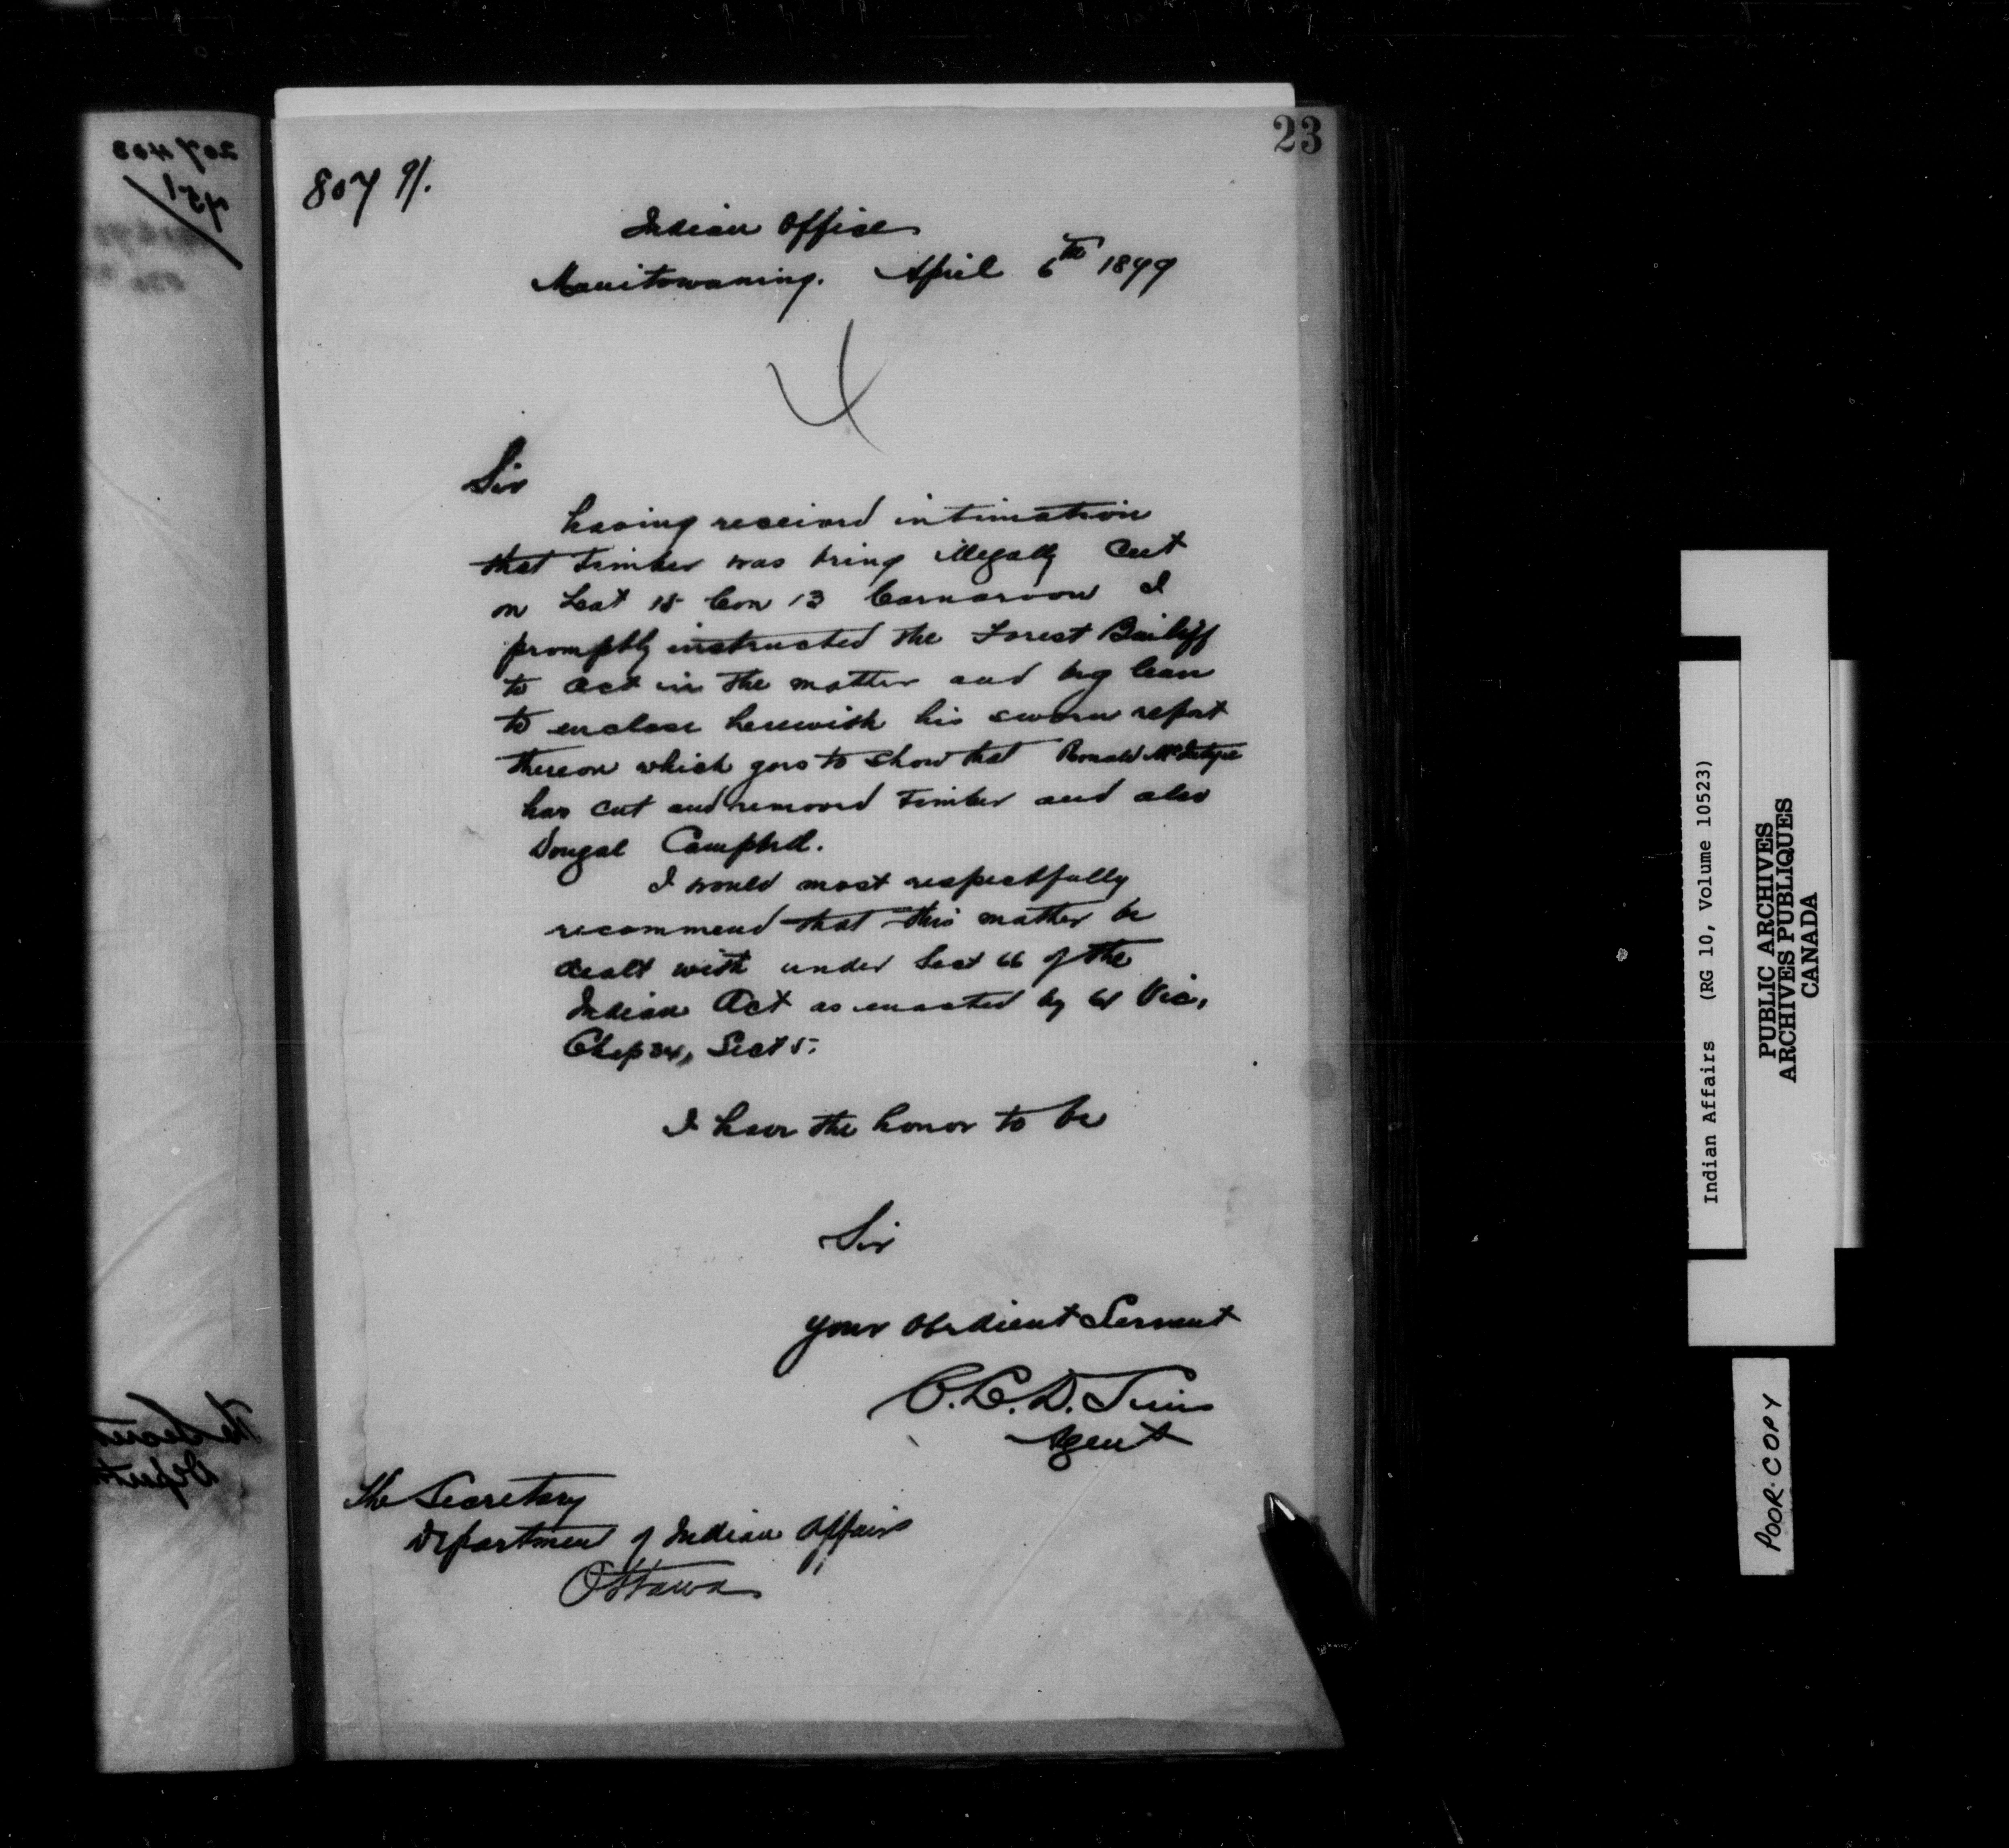 23
807 91.
Indian Office
Manitowaning. April 6th 1899
Sir
having received intimation
that Timber was being illegally Cut
on Lot 15 Con 13 Carnarvon I
promptly instructed the Forest Bailiff
to act in the matter and beg leave
to enclose herewith his sworn report
thereon which goes to show that Ronald McIntyre
has cut and removed Timber and also
Dougal Campbell.
I would most respectfully
recommend that this matter be
dealt with under Sect 66 of the
Indian Act as enacted by 61 Vic,
Chap 34, Sect 5.
I have the honor to be
Sir
your obedient Servant
Agent
The Secretary
Department of Indian Affairs
Ottawa
Indian Affairs (RG 10, Volume 10523)
PUBLIC ARCHIVES
ARCHIVES PUBLIQUES
CANADA
POOR COPY